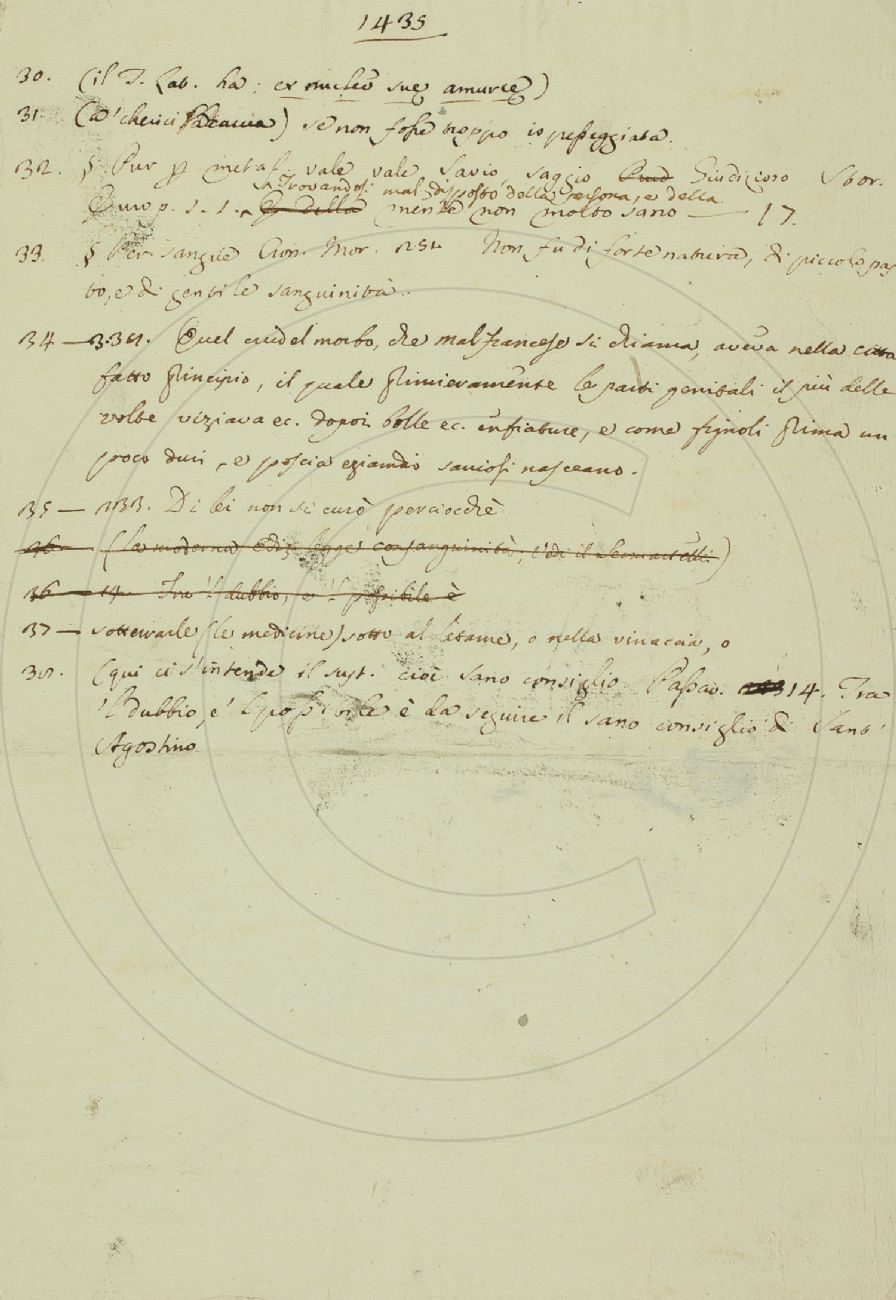 1435
30. (il T. Lat. ha: ex nucleo sue amurce)
31. (a' cherici ) se non fosse troppo io passeggiata.
32. § Pur p metaf. vale vale Savio, saggio Giudizioso Stor.
Trovandosi mal disposto della persona, e della
Europ. 1. 1. E della mente non molto sano — 17.
33. § Per sangue Cron. Mor. 251. Non fu di forte natura, di piccolo pas
to, e di gentile sanguinità.
34 — 331. Quel crudel morbo, che mal francese si chiama, aveva nella citta
fatto principio, il quale primieramente le parti genitali il più delle
volte viziava ec. dopoi bolle ec. enfiature, e come fignoli prima un
poco duri, e poscia eziandio saniosi nasceano.
35 — 233. Di lei non si curò perciocchè
36 — (la moderna Ediz. legge consanguinità, )
36 — 14. Tra 'l dubbio, e 'l possibile è
37 — sotterrarle (le medicine) sotto al letame, o nella vinaccia, o
38. (qui ci s'intende il sust. cioè sano consiglio Passav. 314. Tra
'l dubbio, e' l possibile è da seguire il sano consiglio di Sant'
Agostino